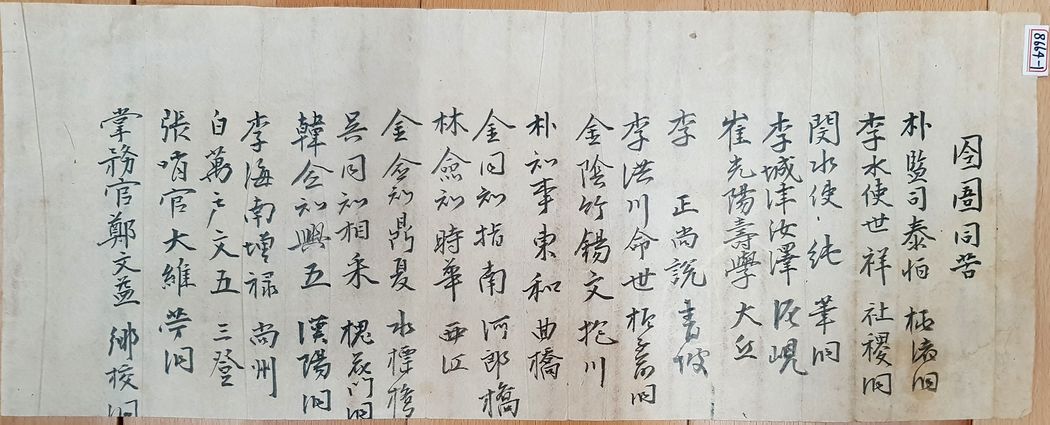 8664-1
囹圄同苦
朴監司泰恒
李水使世祥 社稷洞
閔水使純 筆洞
李城津汝澤 泥峴
崔光陽壽學 大丘
李 正尙說 靑坡
李洪川命世
金陰竹錫文 抱川
朴知事東和 曲橋
金同知指南 河郎橋
林僉知時華 西江
金僉知鼎夏 水標橋
吳同知相采 槐花門洞
韓僉知興五 漢陽洞
李海南增祿 尙州
白萬戶文五 三登
張哨官大維 芋洞
掌務官鄭文益 鄕校洞